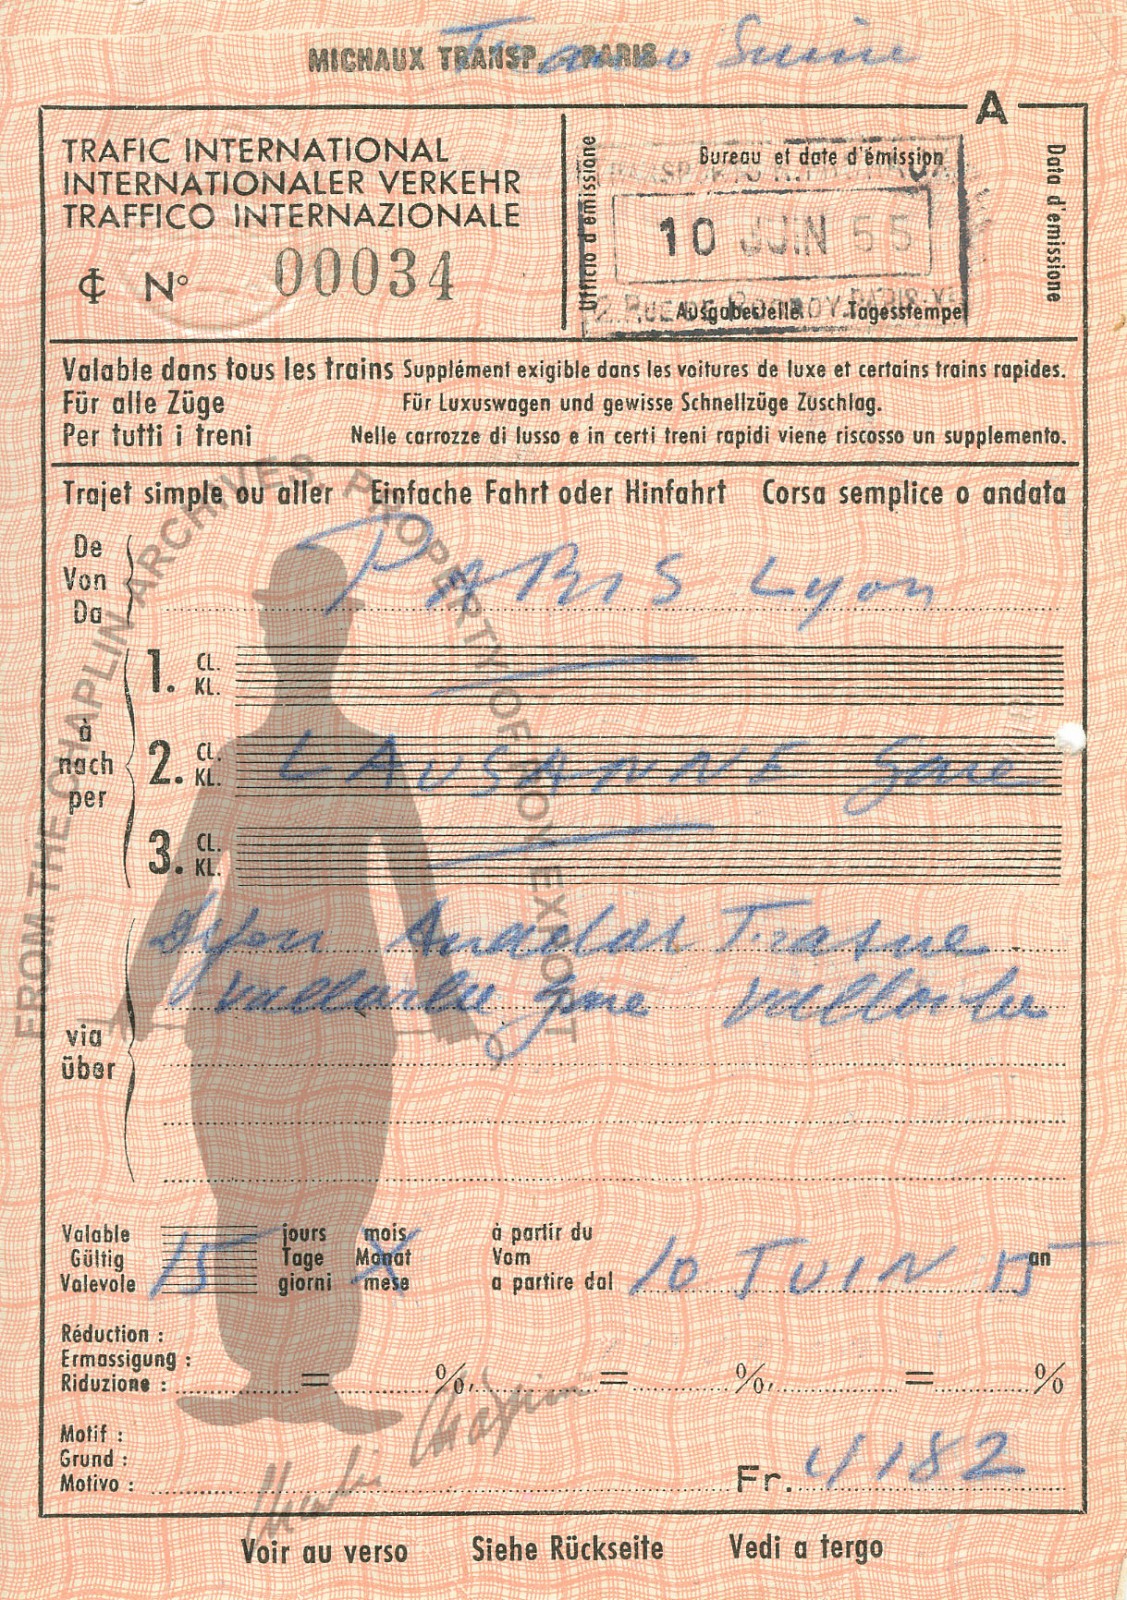 MICHAUX TRANSP. - PARIS
A
TRAFIC INTERNATIONAL
INTERNATIONALER VERKEHR
TRAFFICO INTERNAZIONALE
N° 00034
Ufficio d'émissione
Bureau et date d'émission
10 JUIN 55
Ausgabestelle Tagesstempel
Data d'emissione
Valable dans tous les trains Supplément exigible dans les voitures de luxe et certains trains rapides.
Für alle Züge Für Luxuswagen und gewisse Schnellzüge Zuschlag.
Per tutti i treni Nelle carrozze di lusso e in certi treni rapidi viene riscosso un supplemento.
Trajet simple ou aller Einfache Fahrt oder Hinfahrt Corsa semplice o andata
De
Von
Da
PARIS Lyon
1. CL. KL.
à
nach
per
2. CL. KL. LAUSANNE Gare
3. CL. KL.
via
über
Dijon Trasne
Vallorbe gare Vallorbe
Valable jours mois à partir du
Gültig 15 Tage Monat Vom 10 JUIN 55 an
Valevole giorni mese a partire dal
Réduction :
Ermassigung :
Riduzione : = %, = %, = %
Motif :
Grund :
Motivo :
Fr. 4182
Voir au verso Siehe Rückseite Vedi a tergo
FROM THE CHAPLIN ARCHIVES, PROPERTY OF ROY EXPORT
Charlie Chaplin